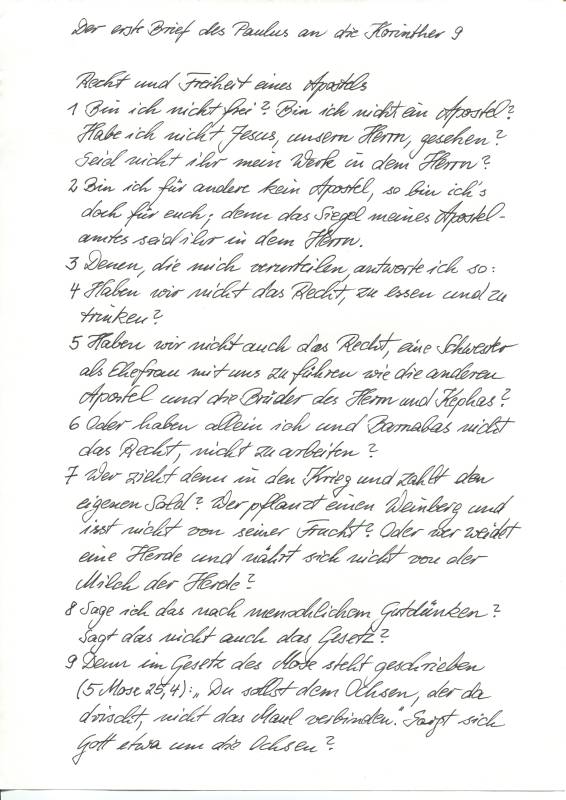 Der erste Brief des Paulus an die Korinther 9
Recht und Freiheit eines Apostels
1 Bin ich nicht frei? Bin ich nicht ein Apostel?
Habe ich nicht Jesus, unsern Herrn, gesehen?
Seid nicht ihr mein Werk in dem Herrn?
2 Bin ich für andere kein Apostel, so bin ich's
doch für euch; denn das Siegel meines Apostel-
amtes seid ihr in dem Herrn.
3 Denen, die mich verurteilen, antworte ich so:
4 Haben wir nicht das Recht, zu essen und zu
trinken?
5 Haben wir nicht auch das Recht, eine Schwester
als Ehefrau mit uns zu führen wie die anderen
Apostel und die Brüder des Herrn und Kephas?
6 Oder haben allein ich und Barnabas nicht
das Recht, nicht zu arbeiten?
7 Wer zieht denn in den Krieg und zahlt den
eigenen Sold? Wer pflanzt einen Weinberg und
isst nicht von seiner Frucht? Oder wer weidet
eine Herde und nährt sich nicht von der
Milch der Herde?
8 Sage ich das nach menschlichem Gutdünken?
Sagt das nicht auch das Gesetz?
9 Denn im Gesetz des Mose steht geschrieben
(5 Mose 25,4): „Du sollst dem Ochsen, der da
drischt, nicht das Maul verbinden." Sorgt sich
Gott etwa um die Ochsen?